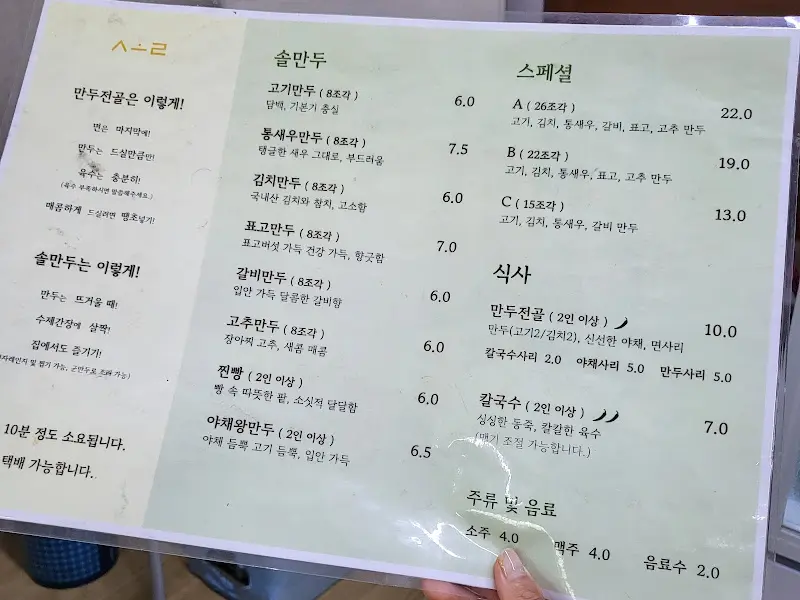 ㅅㅗㄹ
만두전골은 이렇게!
면은 마지막에!
만두는 드실만큼만!
육수는 충분히!
(육수 부족하시면 말씀해주세요.)
매콤하게 드실려면 땡초넣기!
솔만두는 이렇게!
만두는 뜨거울 때!
수제간장에 살짝!
집에서도 즐기기!
자레인지 및 찜기 가능, 군만두로 조리 가능)
10분 정도 소요됩니다.
택배 가능합니다.
솔만두
고기만두 ( 8조각 ) 6.0
담백, 기본기 충실
통새우만두 ( 8조각 ) 7.5
탱글한 새우 그대로, 부드러움
김치만두 ( 8조각 ) 6.0
국내산 김치와 참치, 고소함
표고만두 ( 8조각 ) 7.0
표고버섯 가득 건강 가득, 향긋함
갈비만두 ( 8조각 ) 6.0
입안 가득 달콤한 갈비향
고추만두 ( 8조각 ) 6.0
장아찌 고추, 새콤 매콤
찐빵 ( 2인 이상 ) 6.0
빵 속 따뜻한 팥, 소싯적 달달함
야채왕만두 ( 2인 이상 ) 6.5
야채 듬뿍 고기 듬뿍, 입안 가득
스페셜
A ( 26조각 ) 22.0
고기, 김치, 통새우, 갈비, 표고, 고추 만두
B ( 22조각 ) 19.0
고기, 김치, 통새우, 표고, 고추 만두
C ( 15조각 ) 13.0
고기, 김치, 통새우, 갈비 만두
식사
만두전골 ( 2인 이상 ) 10.0
만두(고기2/김치2), 신선한 야채, 면사리
칼국수사리 2.0 야채사리 5.0 만두사리 5.0
칼국수 ( 2인 이상 ) 7.0
싱싱한 동죽, 칼칼한 육수
(맵기 조절 가능합니다.)
주류 및 음료
소주 4.0 맥주 4.0 음료수 2.0